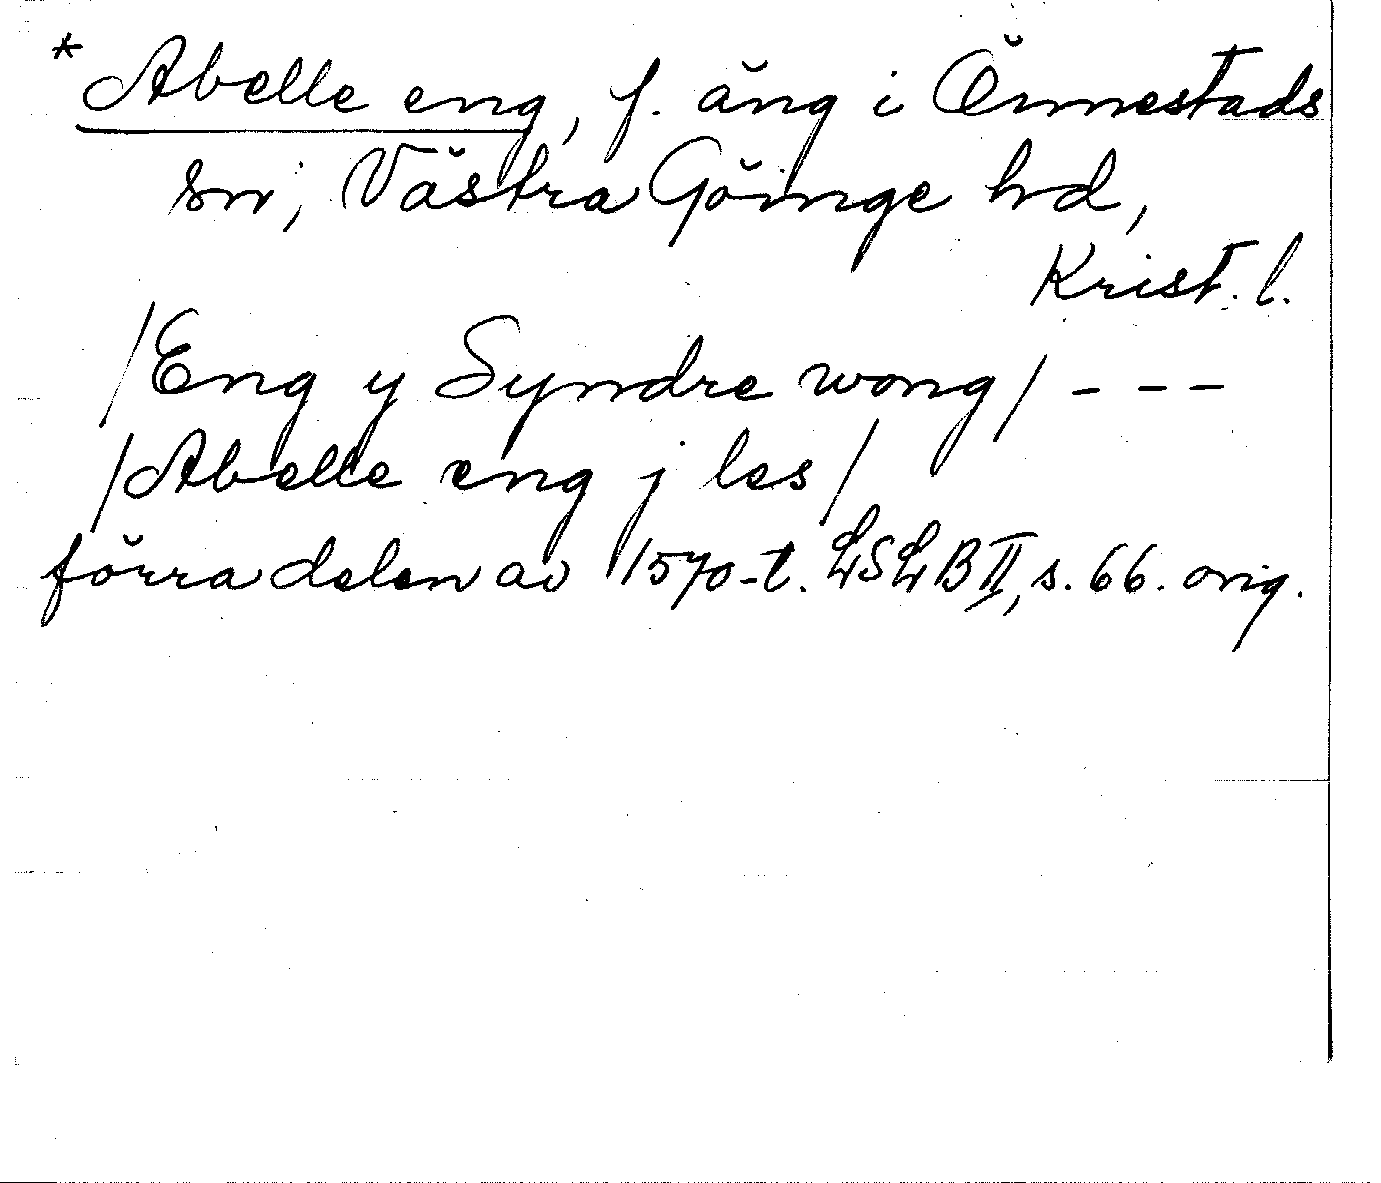 * Abelle eng, f. äng i Önnestads
sn, Västra Göinge hd,
Krist. l.
/Eng y Syndre wong/ - - -
/Abelle eng j les/
förra delen av 1570-t. LSLB II, s. 66. orig.